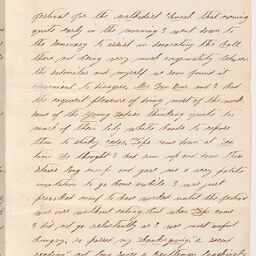 festival for the methodist church that evening
quite early in the morning I went down to
the Seminary to assist in decorating the Hall
there not being very much congeniality between
the and myself we soon found it
convenient to disagree. Mr. and I had
the exquisite pleasure of doing most of the work
some of the Young ladies thinking quite too
much of their lily white hands to expose
them to sticky Papa came down at ten
time He thought I had run up and down those
stairs long enough and gave me a very polite
invitation to go home while I was just
preached enough to have worked until the festival
was over without eating, but when Papa came
I did not go reluctantly as I was most awful
hungry, so passes my thanksgiving, "a
reading" not long since a gentleman laughingly